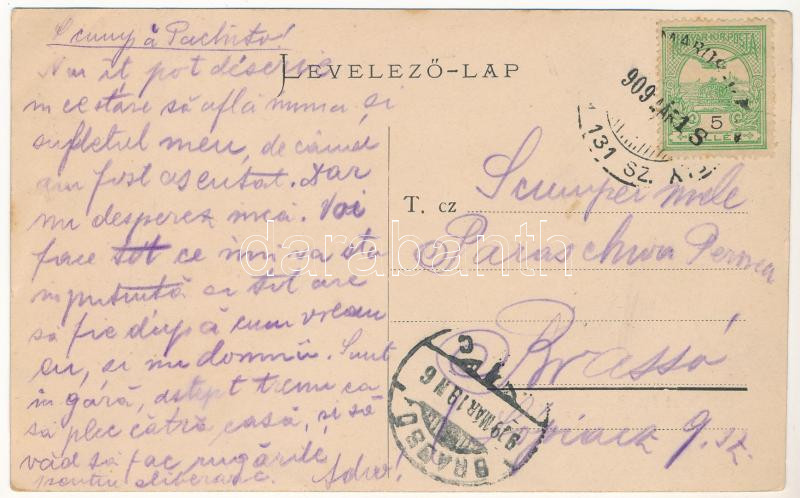 Scumpă Pachito!
Nu îți pot descrie
in ce stare să află inima și
sufletul meu, de când
am fost asentat. Dar
nu desper încă. Voi
face tot ce îmi va sta
in putință și tot are
să fie după cum vreau
eu, și nu domnii. Sunt
în gară, aștept trenu ca
să plec cătră casă, și să
văd să fac rugările
pentru eliberare. Adio!
LEVELEZŐ-LAP
MAGYAR KIR. POSTA
5
FILLÉR
MAROS
909 MÁR 18
131 SZ.
T. cz
Scumpei mele
Paraschiva
Brassó
9. sz.
BRASSÓ
909 MAR 18 N 6
C
darabanth